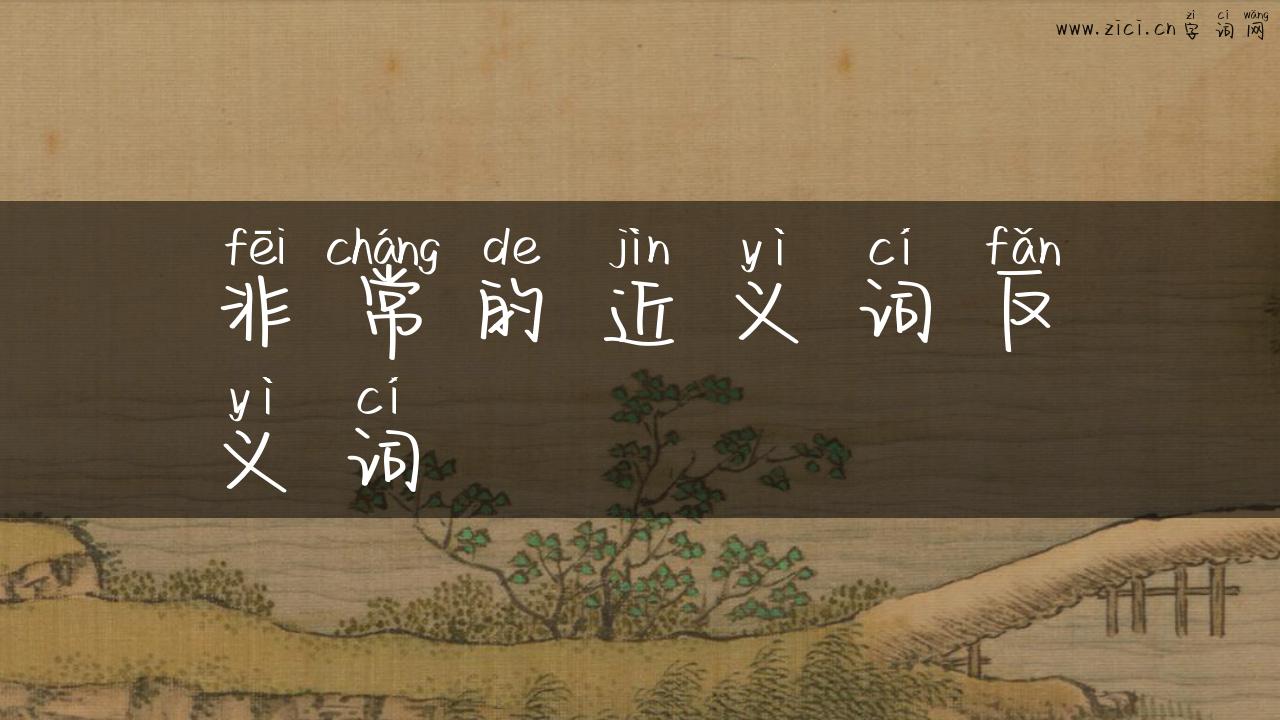 zì cí wǎng
www.zici.cn 字词网
fēi cháng de jìn yì cí fǎn
非常的近义词反
yì cí
义词